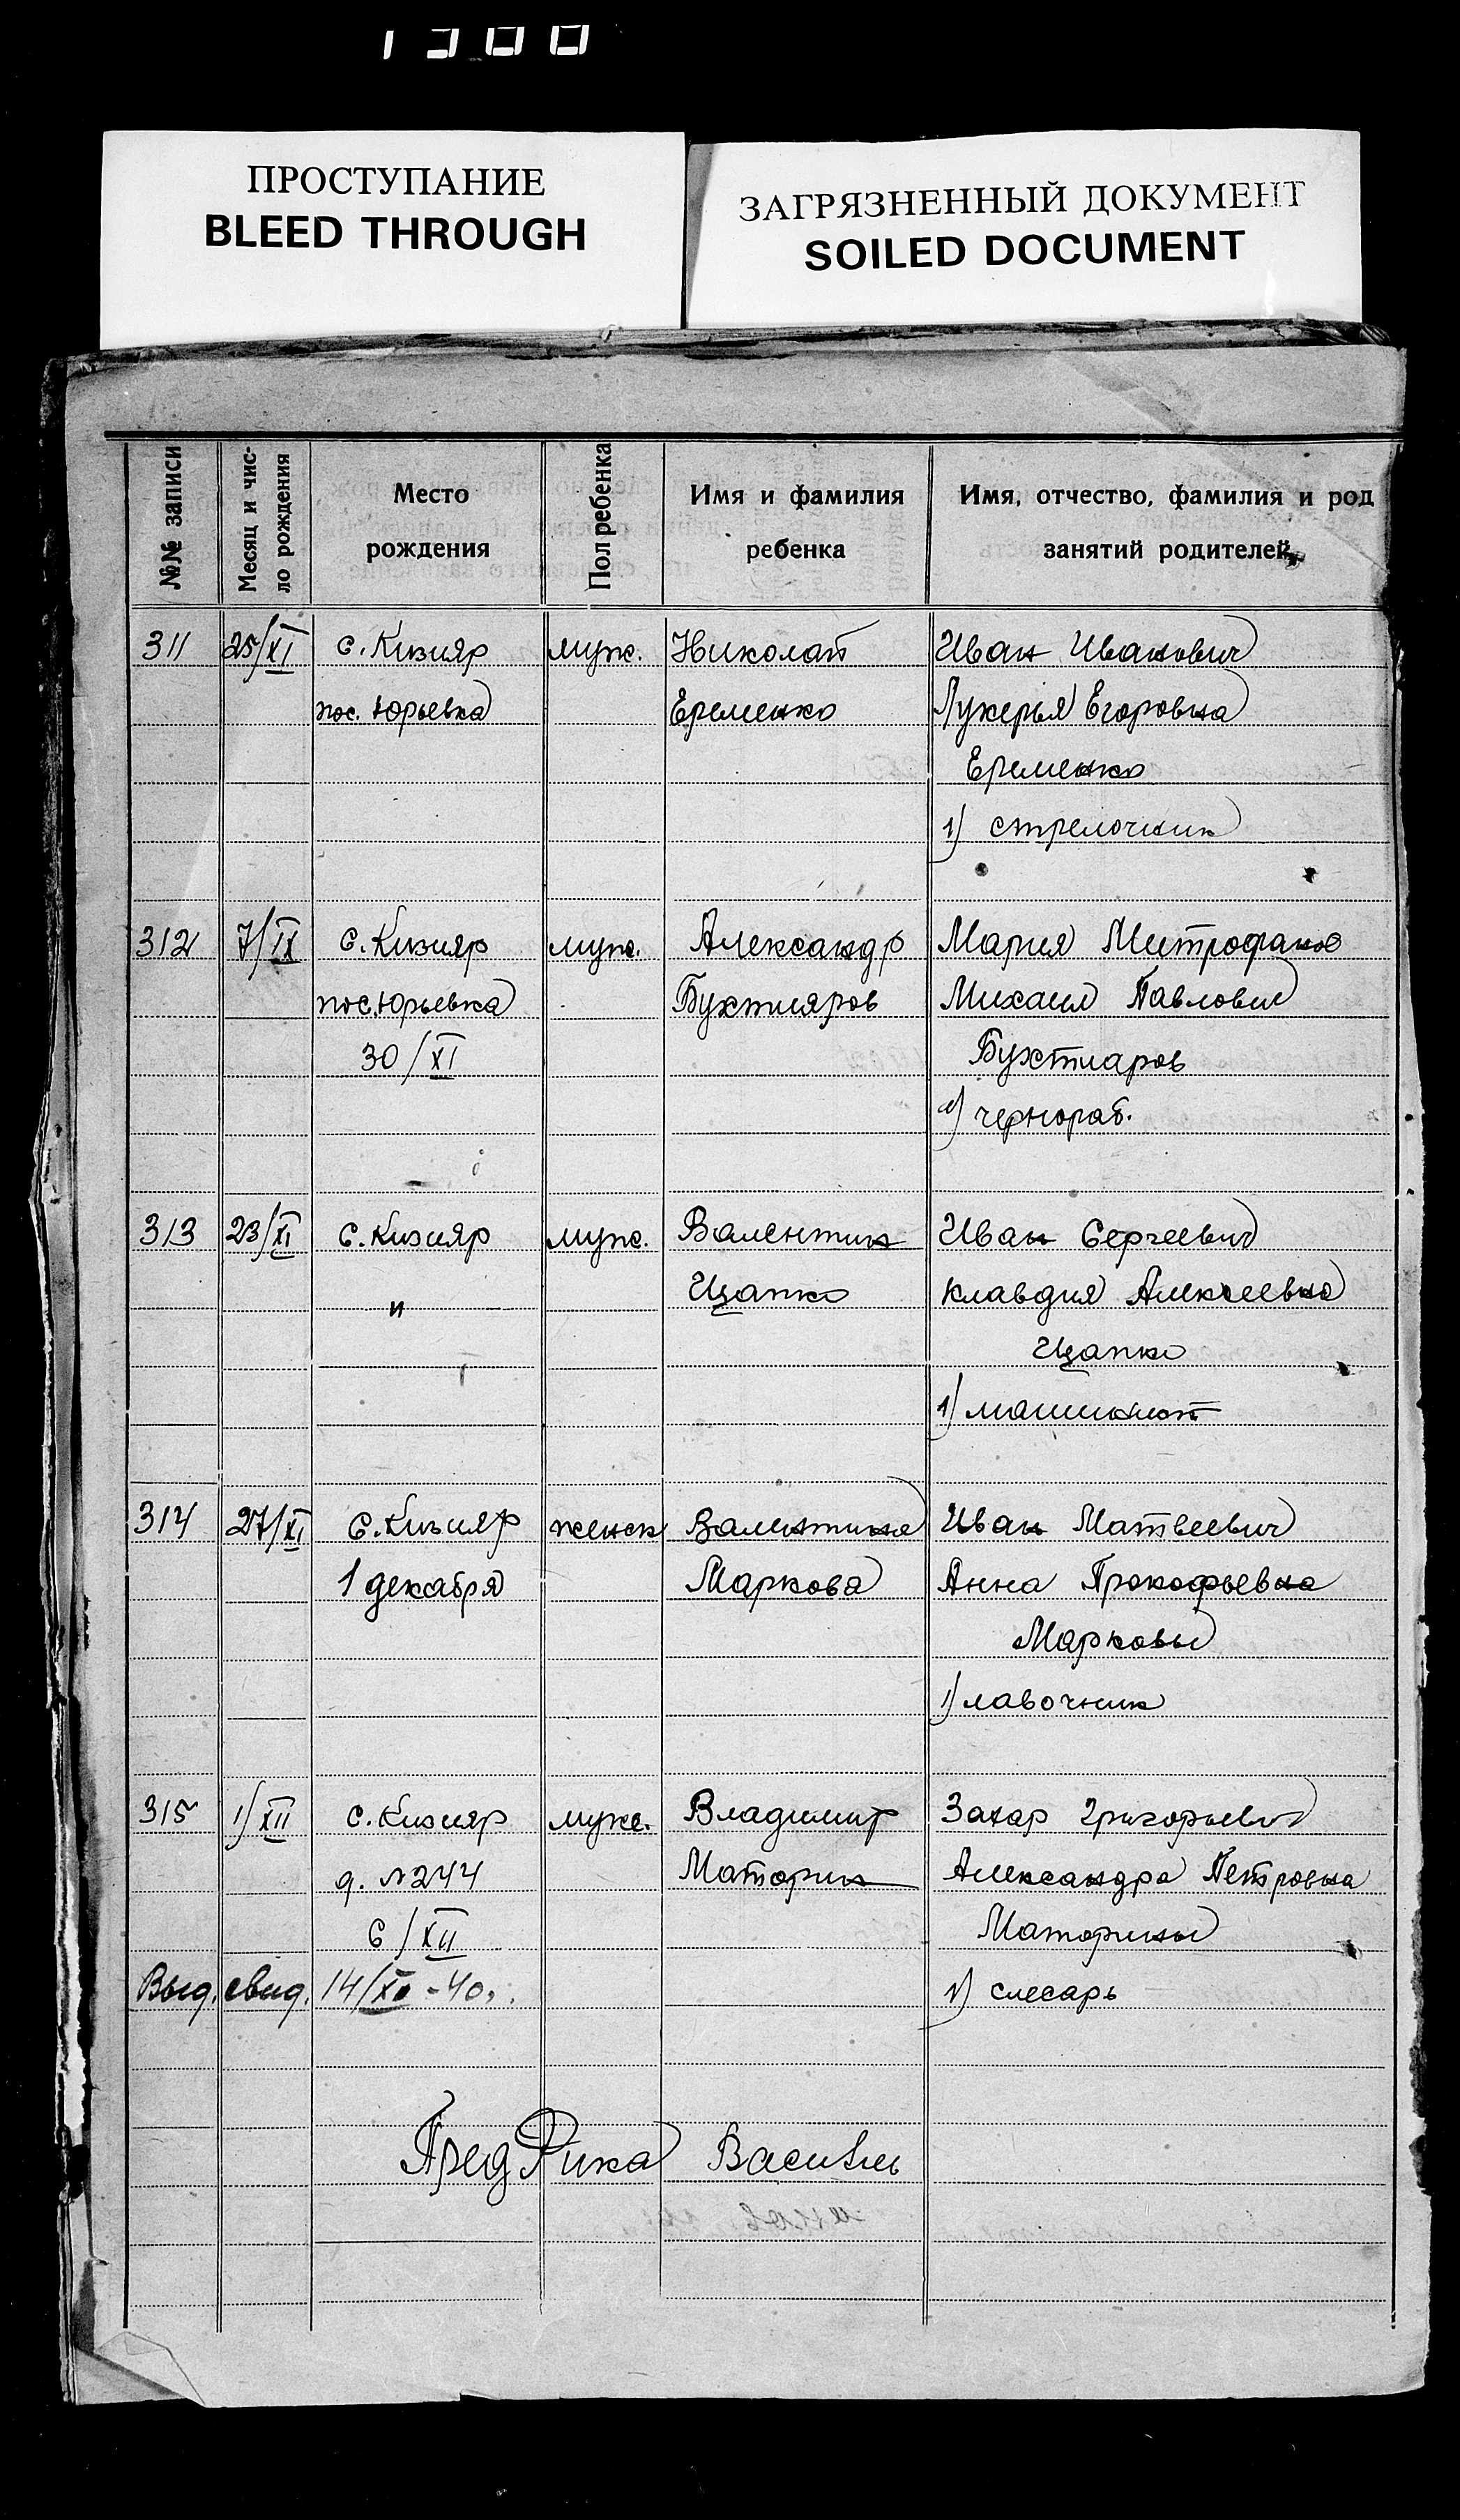 1300
ПРОСТУПАНИЕ
BLEED THROUGH
ЗАГРЯЗНЕННЫЙ ДОКУМЕНТ
SOILED DOCUMENT
№№ записи
Месяц и чис-
ло рождения
Место
рождения
Пол ребенка
Имя и фамилия
ребенка
Имя, отчество, фамилия и род
занятий родителей
311 25/XI с. Кизияр муж. Николай Иван Иванович
пос. Юрьевка Еременко Лукерья Егоровна
Еременко
1) стрелочник
312 7/IX с. Кизияр муж. Александр Мария Митрофано
пос. Юрьевка Бухтияров Михаил Павлович
30/XI Бухтиаров
чернораб.
313 23/XI с. Кизияр муж. Валентин Иван Сергеевич
и Цапко Клавдия Алексеевна
Цапко
1) машинист
314 27/XI с. Кизияр женск Валентина Иван Матвеевич
1 декабря Маркова Анна Прокофьевна
Марковы
1) лавочник
315 1/XII с. Кизияр муж. Владимир Захар Григорьевич
д. №244 Маторин Александра Петровна
6/XII Маторины
Выд. свид. 14/XII-40г. 1) слесарь
Пред Рика